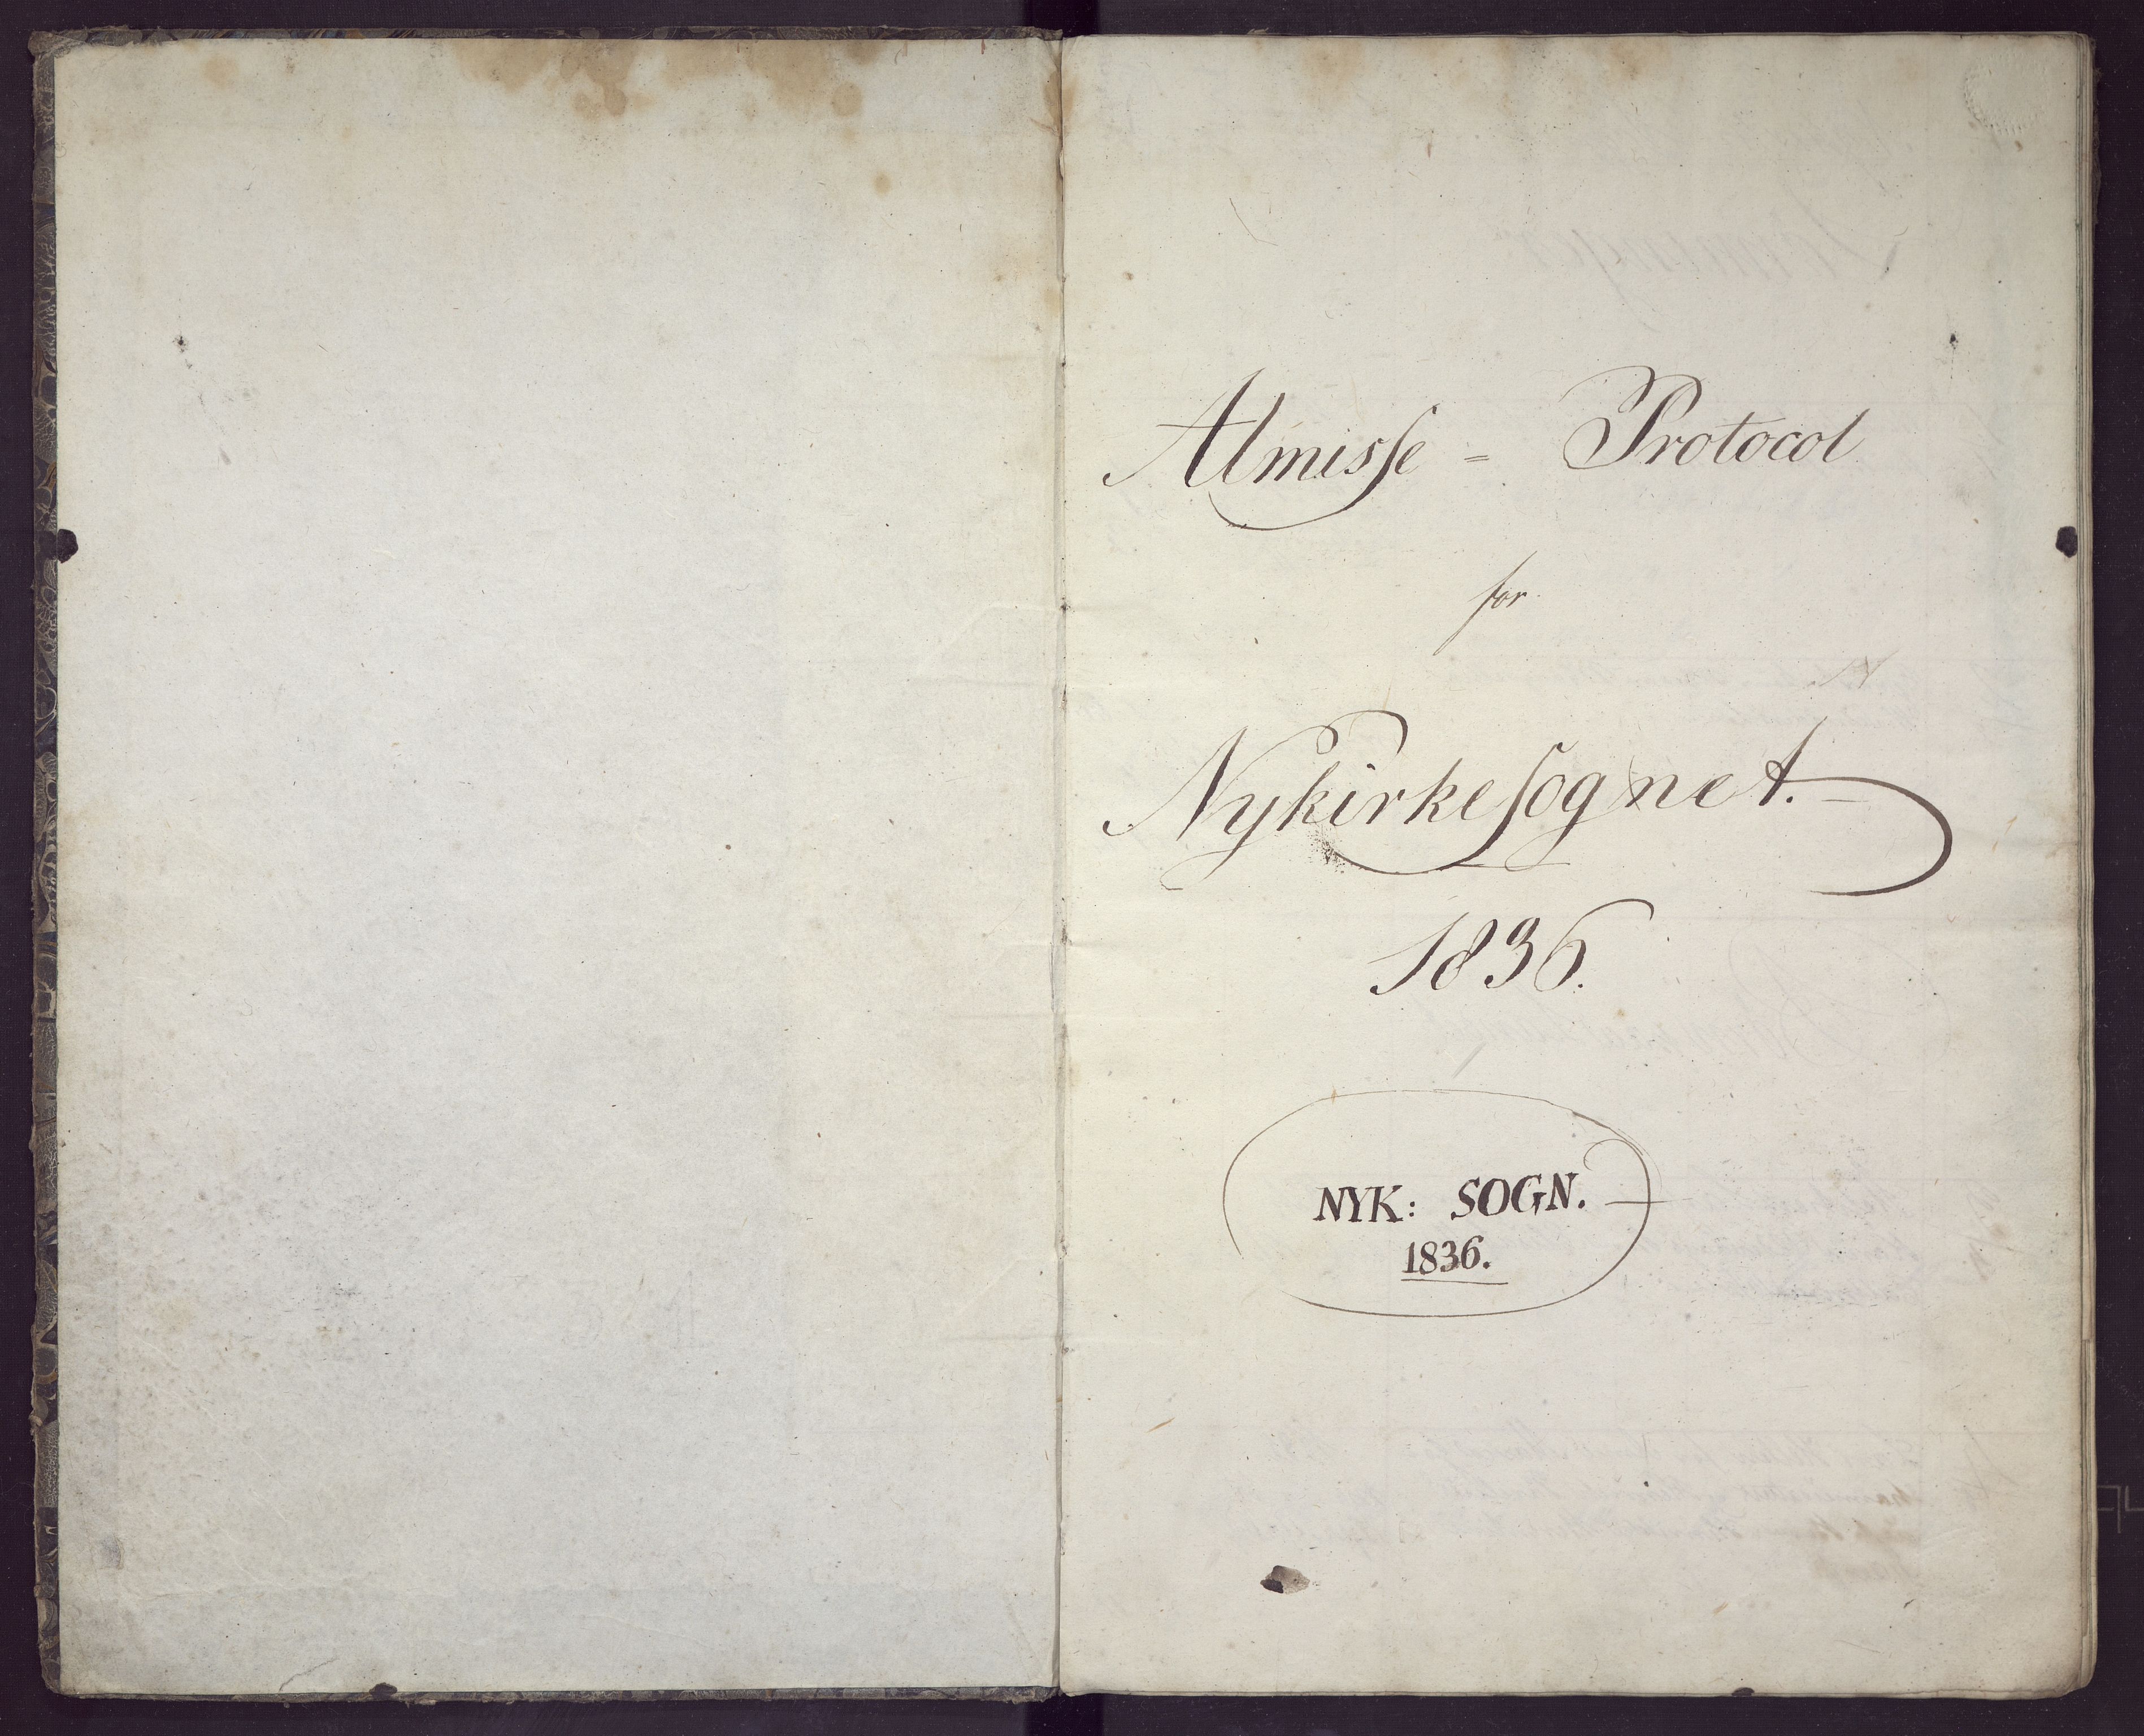 Almisse = Protocol
for
Nykirkesognet.
1836.
NYK: SOGN.
1836.